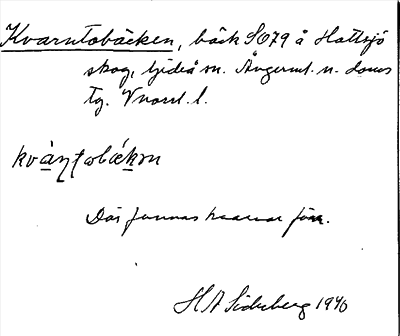 Kvarntobäcken, bäck SO79 å Hattsjö
skog, Ljideå sn. Ångerml. n. doms
tg. Vnorrl. l.
kvàṇtobǽkɔn
Där funnos kvarnar förr.
H A Söderberg 1940